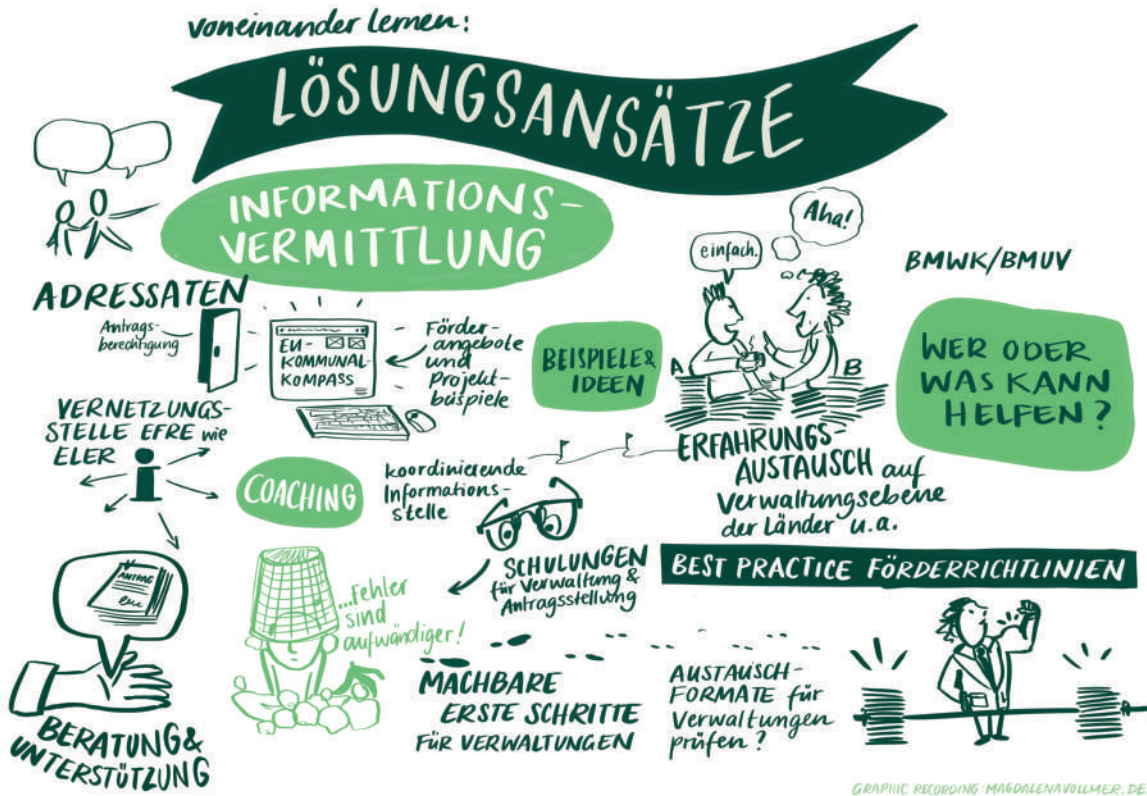 voneinander lernen:
LÖSUNGSANSÄTZE
INFORMATIONS-
VERMITTLUNG
ADRESSATEN
Antrags-
berechtigung
EU-
KOMMUNAL-
KOMPASS
Förder-
angebote
und
Projekt-
beispiele
BEISPIELE &
IDEEN
einfach.
Aha!
A
B
BMWK/BMUV
WER ODER
WAS KANN
HELFEN?
VERNETZUNGS-
STELLE EFRE wie
ELER
COACHING
koordinierende
Informations-
stelle
ERFAHRUNGS-
AUSTAUSCH auf
Verwaltungsebene
der Länder u.a.
SCHULUNGEN
für Verwaltung &
Antragsstellung
BEST PRACTICE FÖRDERRICHTLINIEN
ANTRAG
BERATUNG &
UNTERSTÜTZUNG
...Fehler
sind
aufwändiger!
MACHBARE
ERSTE SCHRITTE
FÜR VERWALTUNGEN
AUSTAUSCH-
FORMATE für
Verwaltungen
prüfen?
GRAPHIC RECORDING: MAGDALENAVOLLMER.DE